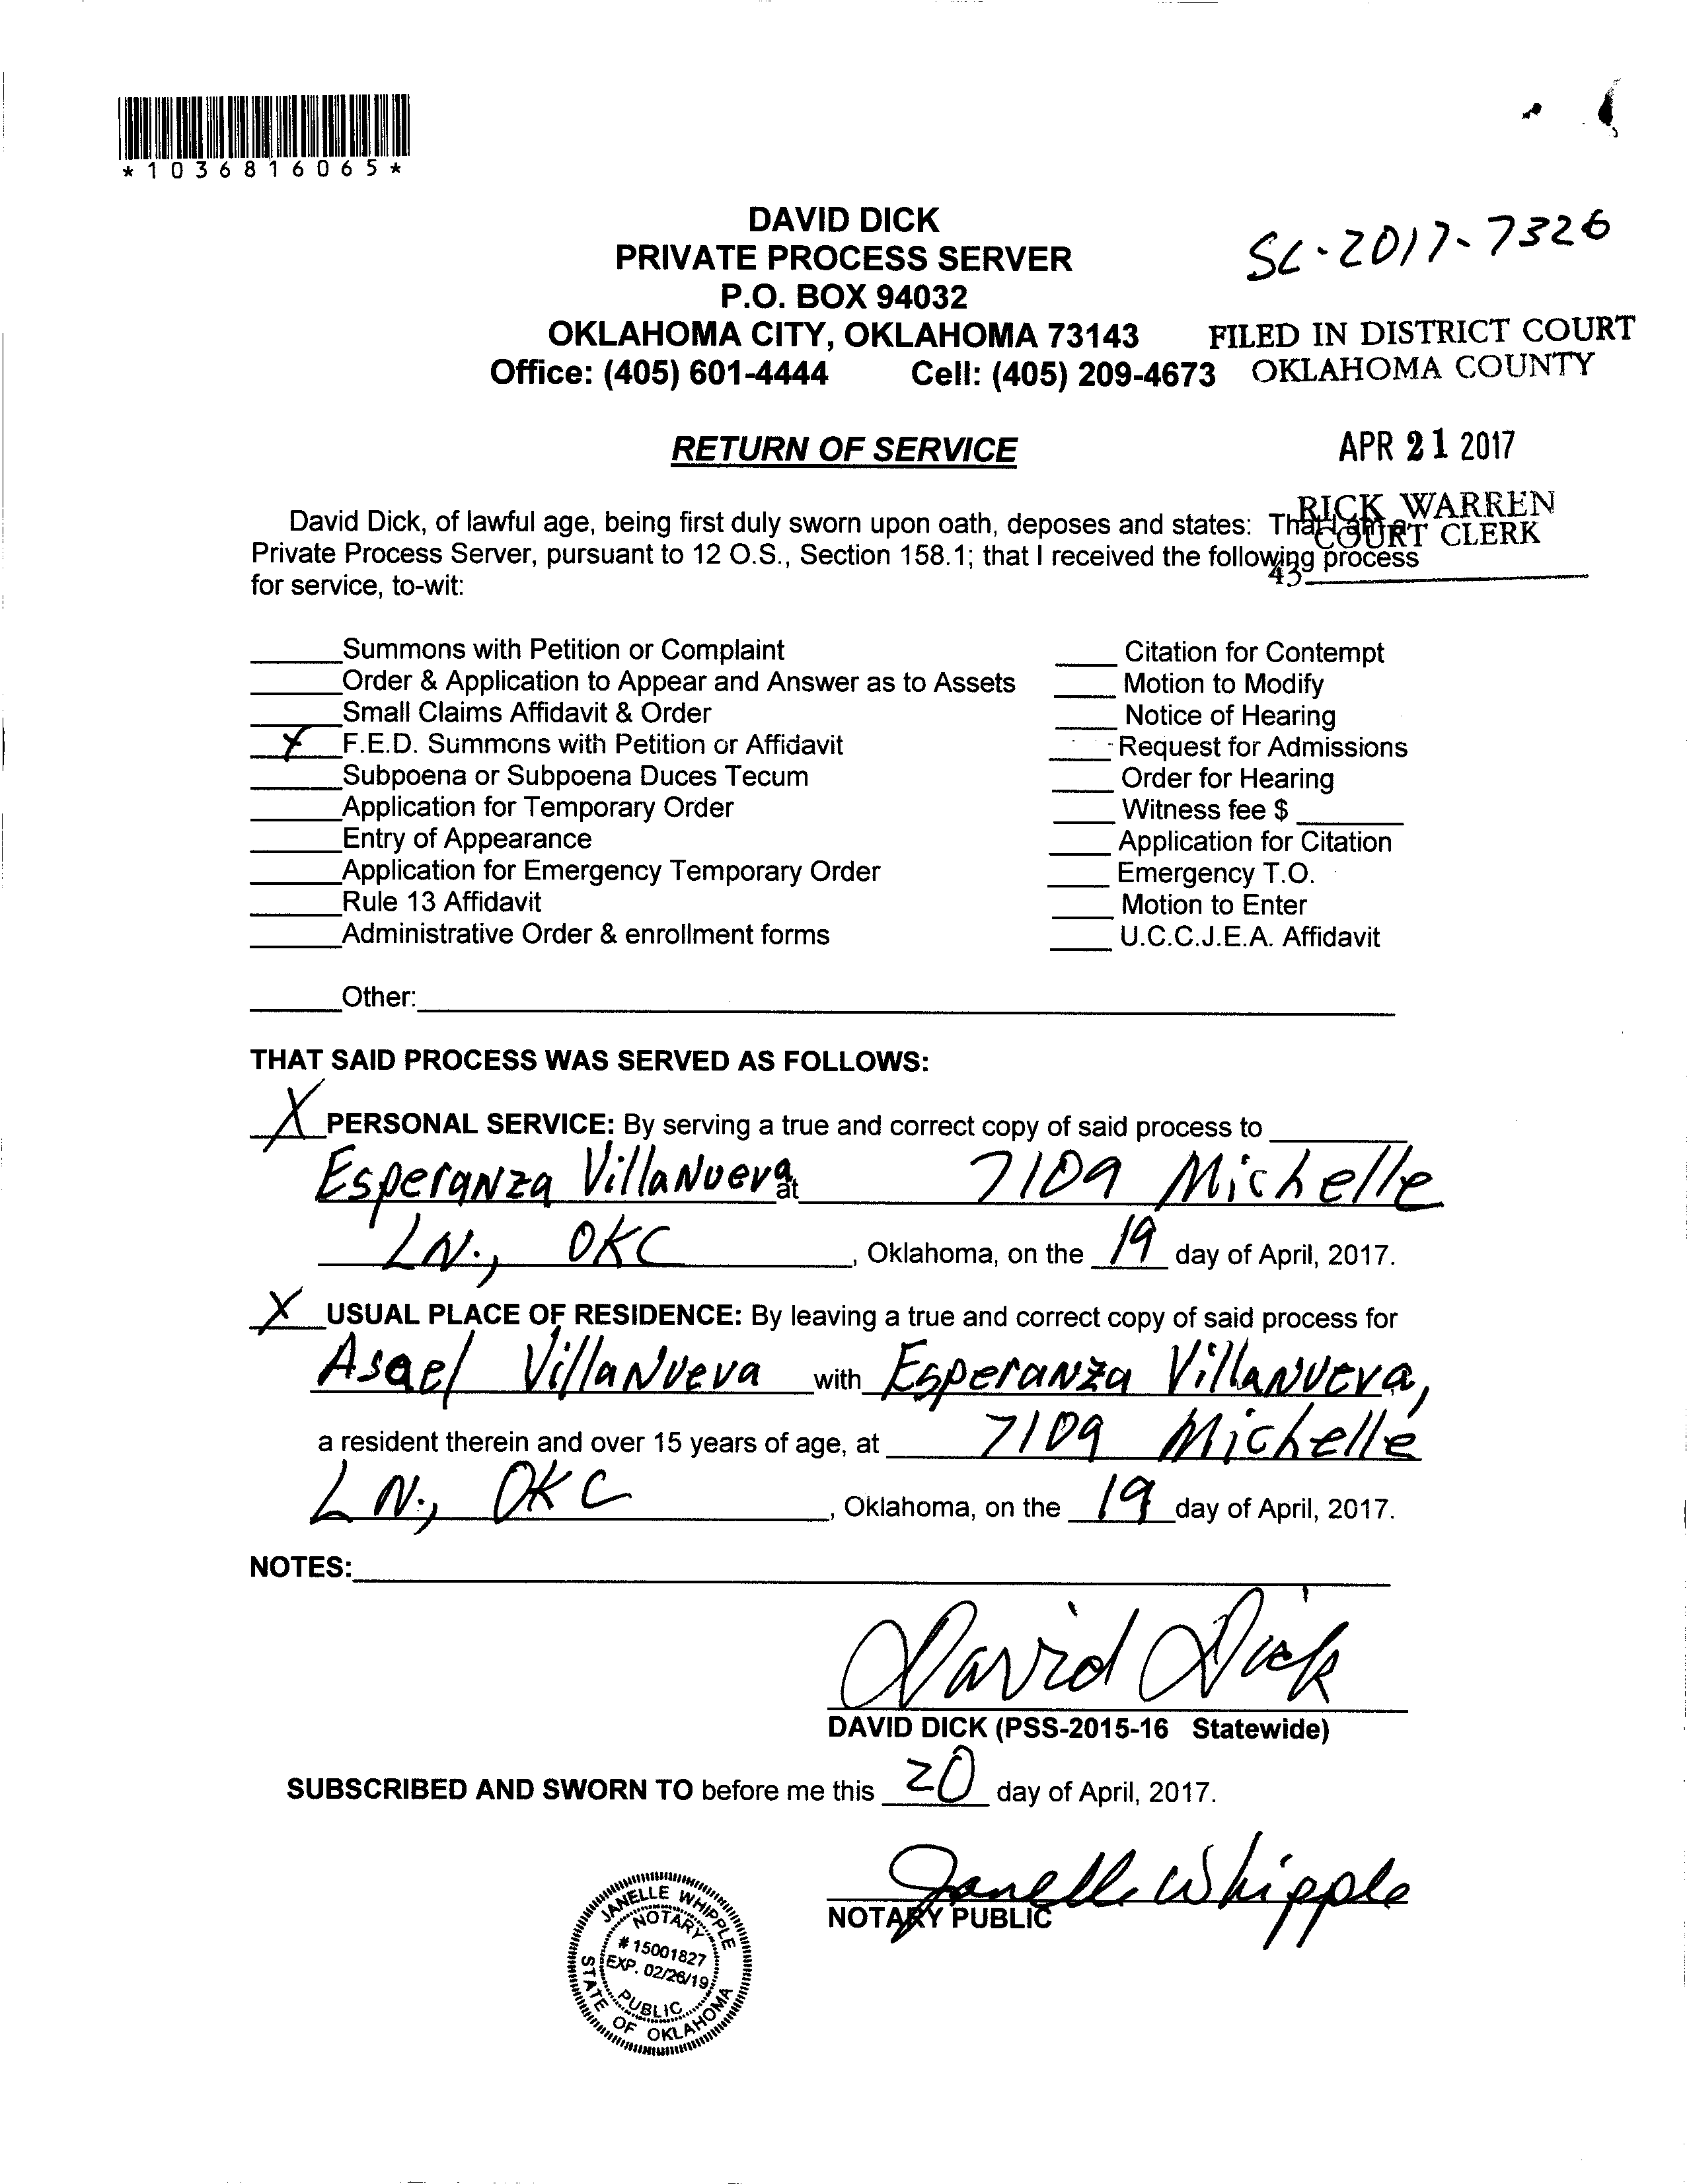 *1036816065*
DAVID DICK
PRIVATE PROCESS SERVER
P.O. BOX 94032
OKLAHOMA CITY, OKLAHOMA 73143
Office: (405) 601-4444 Cell: (405) 209-4673
SC-2017-7326
FILED IN DISTRICT COURT
OKLAHOMA COUNTY
APR 21 2017
RICK WARREN
COURT CLERK
43
RETURN OF SERVICE
David Dick, of lawful age, being first duly sworn upon oath, deposes and states: That I am a
Private Process Server, pursuant to 12 O.S., Section 158.1; that I received the following process
for service, to-wit:
Summons with Petition or Complaint
Order & Application to Appear and Answer as to Assets
Small Claims Affidavit & Order
X F.E.D. Summons with Petition or Affidavit
Subpoena or Subpoena Duces Tecum
Application for Temporary Order
Entry of Appearance
Application for Emergency Temporary Order
Rule 13 Affidavit
Administrative Order & enrollment forms
Citation for Contempt
Motion to Modify
Notice of Hearing
Request for Admissions
Order for Hearing
Witness fee $
Application for Citation
Emergency T.O.
Motion to Enter
U.C.C.J.E.A. Affidavit
Other:
THAT SAID PROCESS WAS SERVED AS FOLLOWS:
X PERSONAL SERVICE: By serving a true and correct copy of said process to
Esperanza Villanueva at 7109 Michelle
LN., OKC, Oklahoma, on the 19 day of April, 2017.
X USUAL PLACE OF RESIDENCE: By leaving a true and correct copy of said process for
Asael Villanueva with Esperanza Villanueva,
a resident therein and over 15 years of age, at 7109 Michelle
LN., OKC, Oklahoma, on the 19 day of April, 2017.
NOTES:
David Dick
DAVID DICK (PSS-2015-16 Statewide)
SUBSCRIBED AND SWORN TO before me this 20 day of April, 2017.
Janelle Whipple
NOTARY PUBLIC
JANELLE WHIPPLE
NOTARY
# 15001827
EXP. 02/26/19
PUBLIC
STATE OF OKLAHOMA